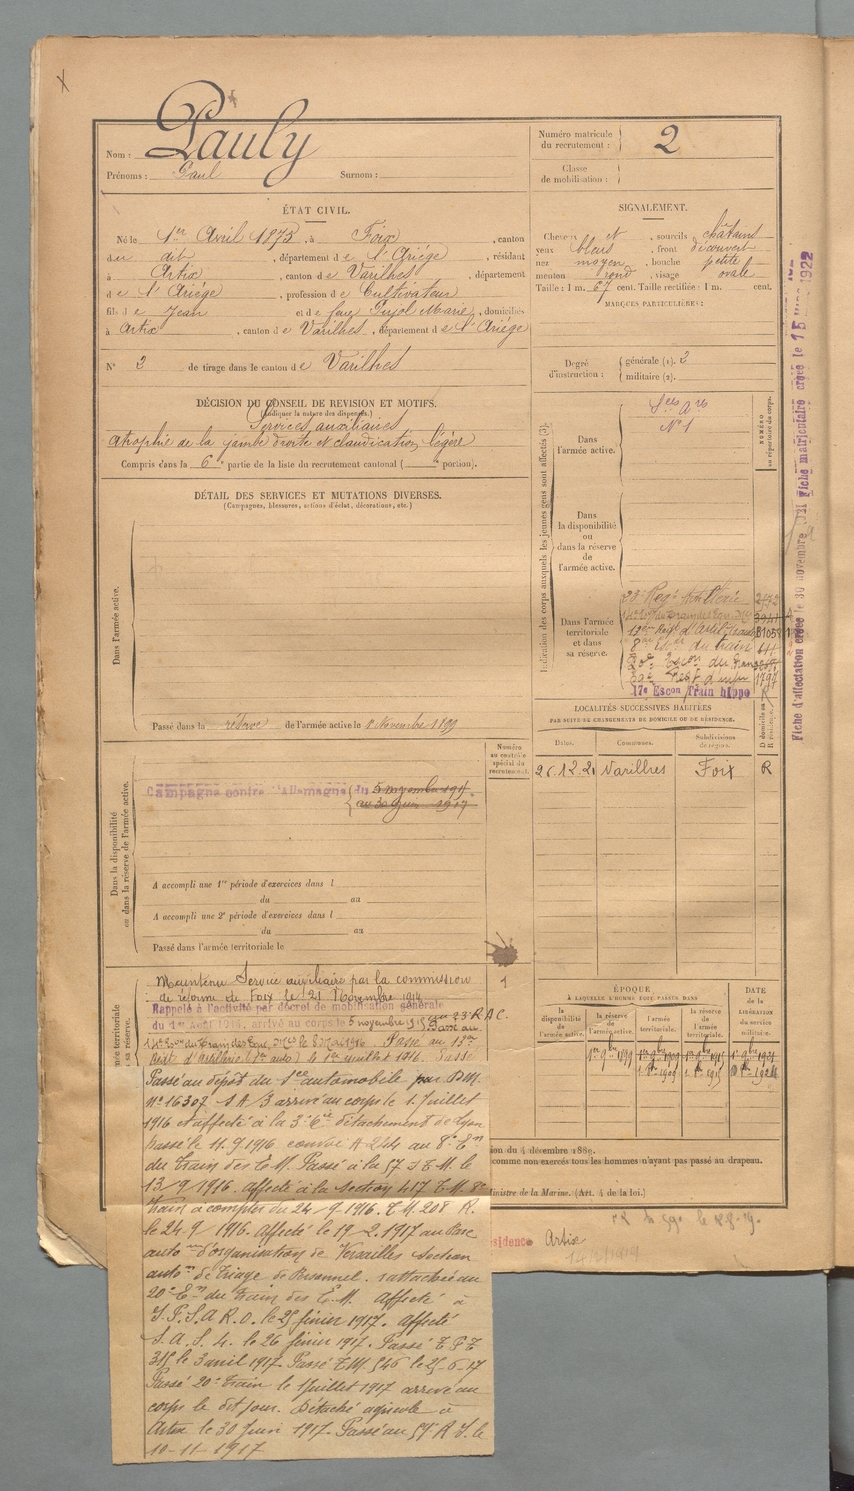 Nom : Pauly
Prénoms : Paul Surnom :
Numéro matricule du recrutement : 2
Classe de mobilisation :
ÉTAT CIVIL.
Né le 1er Avril 1875, à Foix, canton
du dit, département de l'Ariège, résidant
à Artix, canton de Varilhes, département
de l'Ariège, profession de Cultivateur
fils de Jean et de feu Pujol Marie, domiciliés
à Artix, canton de Varilhes, département de l'Ariège
N° 2 de tirage dans le canton de Varilhes
SIGNALEMENT.
Cheveux et, sourcils châtains
yeux bleus, front découvert
nez moyen, bouche petite
menton rond, visage ovale
Taille : 1 m. 67 cent. Taille rectifiée : 1 m. cent.
MARQUES PARTICULIÈRES :
Degré d'instruction : générale (1). 2
militaire (2).
DÉCISION DU CONSEIL DE REVISION ET MOTIFS.
(Indiquer la nature des dispenses.)
Services auxiliaires
atrophie de la jambe droite et claudication légère
Compris dans la 6e partie de la liste du recrutement cantonal ( portion).
DÉTAIL DES SERVICES ET MUTATIONS DIVERSES.
(Campagnes, blessures, actions d'éclat, décorations, etc.)
Dans l'armée active.
Passé dans la réserve de l'armée active le 1 Novembre 1899
Indication des corps auxquels les jeunes gens sont affectés (3).
NUMÉRO au répertoire du corps.
Dans l'armée active.
N° 1
Dans la disponibilité ou dans la réserve de l'armée active.
Dans l'armée territoriale et dans sa réserve.
23e Regt
8e Escon du train
20e Escon du train
17e Escon Train hippo R
LOCALITÉS SUCCESSIVES HABITÉES
PAR SUITE DE CHANGEMENTS DE DOMICILE OU DE RÉSIDENCE.
Dates. Communes. Subdivisions de région. D domicile ou R résidence.
26.12.21 Varilhes Foix R
Dans la disponibilité ou dans la réserve de l'armée active.
Numéro au contrôle spécial du recrutement.
Campagne contre l'Allemagne du 5 novembre 1915
au 30 juin 1917
A accompli une 1re période d'exercices dans l
du au
A accompli une 2e période d'exercices dans l
du au
Passé dans l'armée territoriale le
Maintenu Service auxiliaire par la commission
de réforme de Foix le 21 Novembre 1914
Rappelé à l'activité par décret de mobilisation générale
du 1er Août 1914, arrivé au corps le 5 novembre 1915 au 23e R A C.
Passé au
Passé au 13e
Regt d'Artillerie (1er auto) le 1er juillet 1916. Passé
Passé au dépôt du 1er automobile par D.M.
N° 16307 arrivé au corps le 1 Juillet
1916 et affecté à la 3e détachement de Lyon
passé le 11.9.1916 convoi A 244 au 8e En
du train des E.M. Passé à la
13/9 1916. Affecté à la Section 417 T.M. 8e
train à compter du 24/9-1916. T.M 208 R.
le 24.9 1916. Affecté le 19.2.1917 au Parc
auto d'organisation de Versailles section
auto de triage de Personnel. rattaché au
20e En du train des E.M. Affecté à
le 25 février 1917. Affecté
S.A.S. 4. le 26 février 1917. Passé
le 3 avril 1917. Passé T.M. 546 le 25-6-17
Passé 20e train le 1 juillet 1917 arrivé au
corps le dit jour. Détaché agricole à
Artix le 30 Juin 1917. Passé au 59 R.I. le
10-11-1917
ÉPOQUE
À LAQUELLE L'HOMME DOIT PASSER DANS
la disponibilité de l'armée active. la réserve de l'armée active. l'armée territoriale. la réserve de l'armée territoriale.
DATE de la LIBÉRATION du service militaire.
1er 9bre 1899
ion du 4 décembre 1889.
comme non exercés tous les hommes n'ayant pas passé au drapeau.
Ministre de la Marine. (Art. 4 de la loi.)
sidence Artix
14/12/1919
Fiche matriculaire créée le 15 1922
Fiche d'affectation créée le 30 novembre 1921